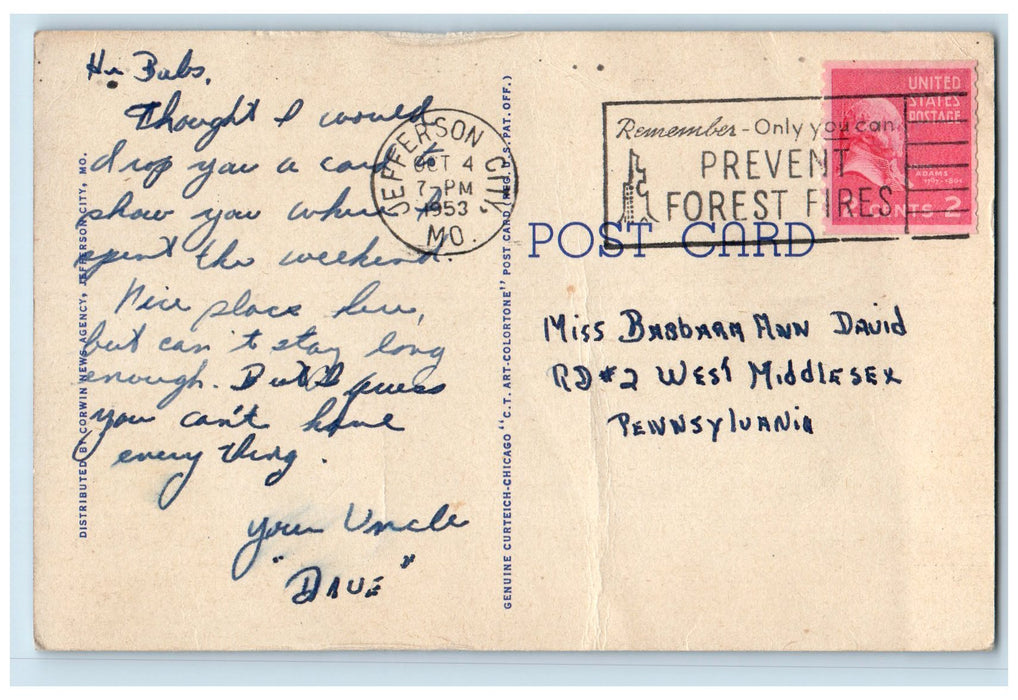 Hi Babs,
Thought I would
drop you a card to
show you where I
spent the weekend.
Nice place here,
but can't stay long
enough. But I guess
you can't have
every thing.
your Uncle
"DAVE"
DISTRIBUTED BY CORWIN NEWS AGENCY, JEFFERSON CITY, MO.
GENUINE CURTEICH-CHICAGO "C.T. ART-COLORTONE" POST CARD (REG. U.S. PAT. OFF.)
JEFFERSON CITY,
OCT 4
7-PM
1953
MO.
Remember - Only you can
PREVENT
FOREST FIRES
UNITED
STATES
POSTAGE
ADAMS
1797-1801
CENTS 2
POST CARD
MISS BARBARA ANN DAVID
RD #2 WEST MIDDLESEX
PENNSYLVANIA